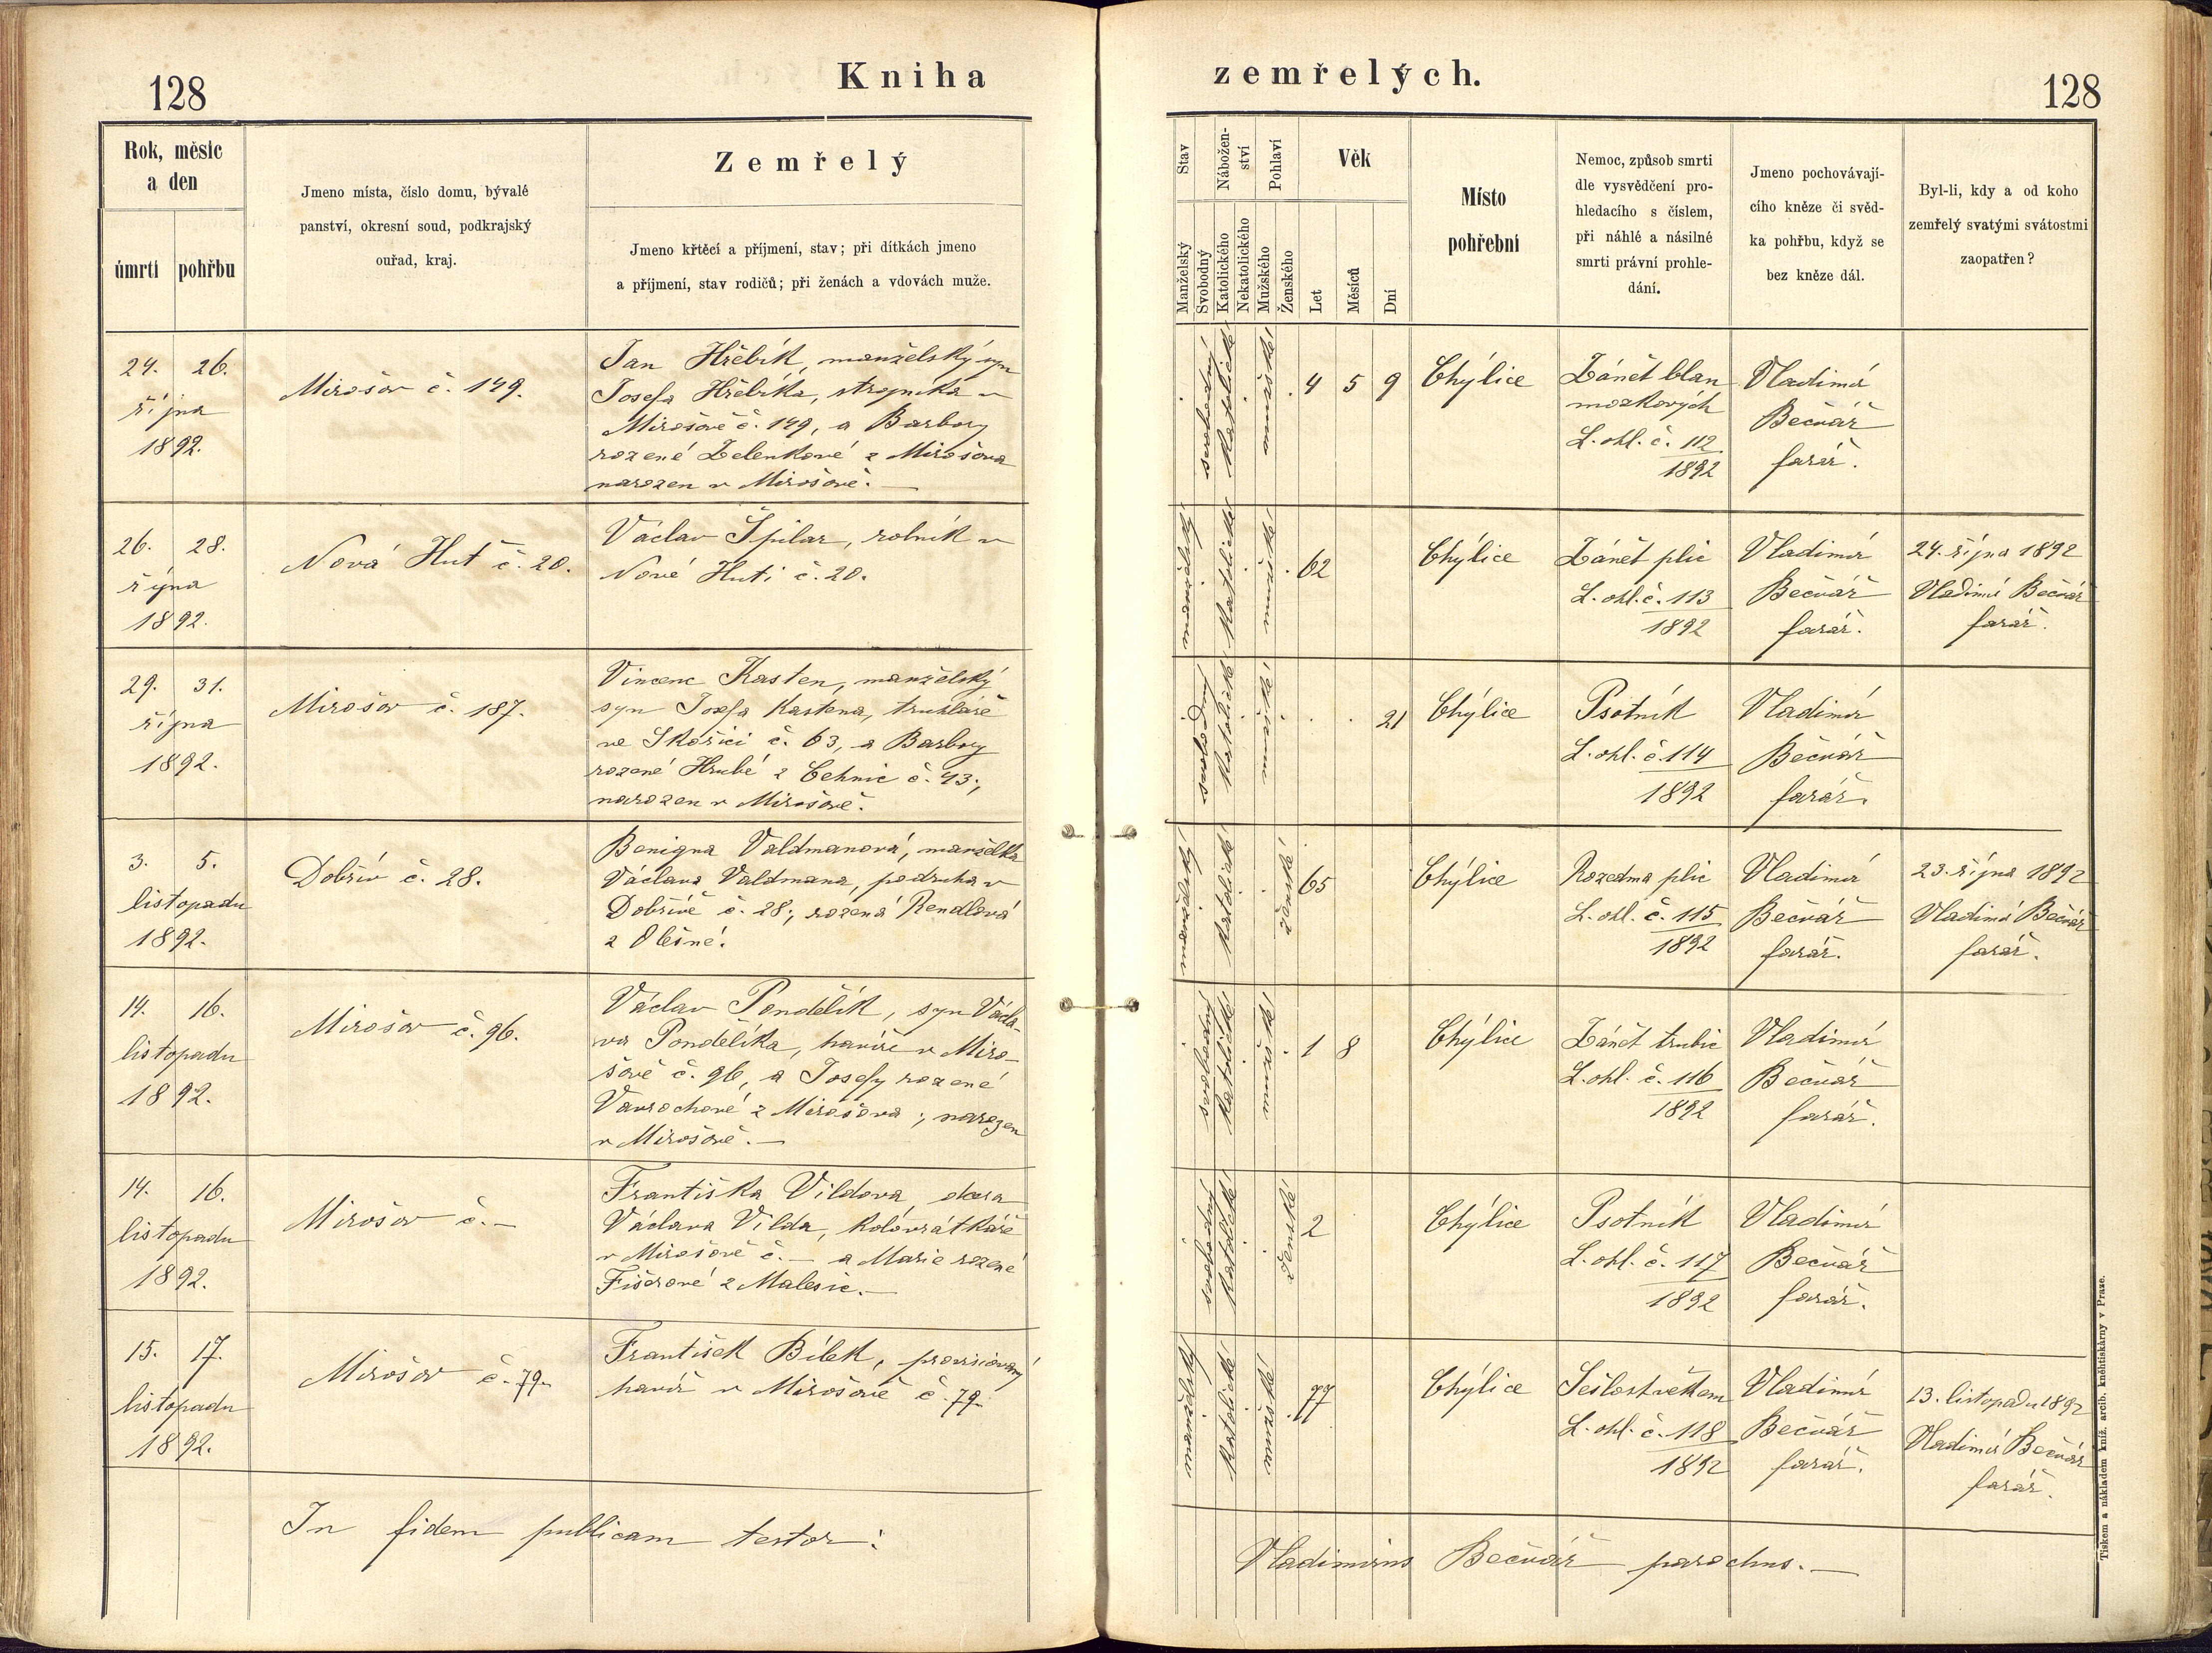 128
Kniha
zemřelých.
128
Rok, měsíc
a den
úmrtí
pohřbu
Jmeno místa, číslo domu, bývalé
panství, okresní soud, podkrajský
ouřad, kraj.
Zemřelý
Jmeno křtěcí a příjmení, stav; při dítkách jmeno
a příjmení, stav rodičů; při ženách a vdovách muže.
Stav
Manželský
Svobodný
Nábožen-
ství
Katolického
Nekatolického
Pohlaví
Mužského
Ženského
Věk
Let
Měsíců
Dní
Místo
pohřební
Nemoc, způsob smrti
dle vysvědčení pro-
hledacího s číslem,
při náhlé a násilné
smrti právní prohle-
dání.
Jmeno pochovávají-
cího kněze či svěd-
ka pohřbu, když se
bez kněze dál.
Byl-li, kdy a od koho
zemřelý svatými svátostmi
zaopatřen?
24. 26.
října
1892.
Mirošov č. 149.
Jan Hřebík, manželský syn
Josefa Hřebíka, strojníka v
Mirošově č. 149, a Barbory
rozené Zelenkové z Mirošova
narozen v Mirošově.
svobodný
katolické
mužské
4 5 9
Chýlice
Zánět blan
mozkových
L. ohl. č. 112
1892
Vladimír
Bečvář
farář.
26. 28.
října
1892.
Nová Huť č. 20.
Václav Špilar, rolník v
Nové Huti č. 20.
manželský
katolické
mužské
62
Chýlice
Zánět plic
L. ohl. č. 113
1892
Vladimír
Bečvář
farář.
24. října 1892
Vladimír Bečvář
farář.
29. 31.
října
1892.
Mirošov č. 187.
Vincenc Kasten, manželský
syn Josefa Kastena, truhláře
ve Skořici č. 63, a Barbory
rozené Hrubé z Cehnic č. 43;
narozen v Mirošově.
svobodný
katolické
mužské
21
Chýlice
Psotník
L. ohl. č. 114
1892
Vladimír
Bečvář
farář.
3. 5.
listopadu
1892.
Dobřív č. 28.
Benigna Valdmanová, manželka
Václava Valdmana, podruha v
Dobřívě č. 28; rozená Rendlová
z Olešné.
manželský
katolické
ženské
65
Chýlice
Rozedma plic
L. ohl. č. 115
1892
Vladimír
Bečvář
farář.
23. října 1892
Vladimír Bečvář
farář.
14. 16.
listopadu
1892.
Mirošov č. 96.
Václav Pondělík, syn Václa-
va Pondělíka, havíře v Miro-
šově č. 96, a Josefy rozené
Vavrochové z Mirošova; narozen
v Mirošově.
svobodný
katolické
mužské
1 8
Chýlice
Zánět trubic
L. ohl. č. 116
1892
Vladimír
Bečvář
farář.
14. 16.
listopadu
1892.
Mirošov č. –
Františka Vildova, dcera
Václava Vilda, kolovrátkáře
v Mirošově č. – a Marie rozené
Fišerové z Malesic.
svobodný
katolické
ženské
2
Chýlice
Psotník
L. ohl. č. 117
1892
Vladimír
Bečvář
farář.
15. 17.
listopadu
1892.
Mirošov č. 79.
František Bílek, provisionovaný
havíř v Mirošově č. 79.
manželský
katolické
mužské
77
Chýlice
Sešlost věkem
L. ohl. č. 118
1892
Vladimír
Bečvář
farář.
13. listopadu 1892
Vladimír Bečvář
farář.
In fidem publicam testor:
Vladimirus Bečvář parochus.
Tiskem a nákladem kníž. arcib. kněhtiskárny v Praze.